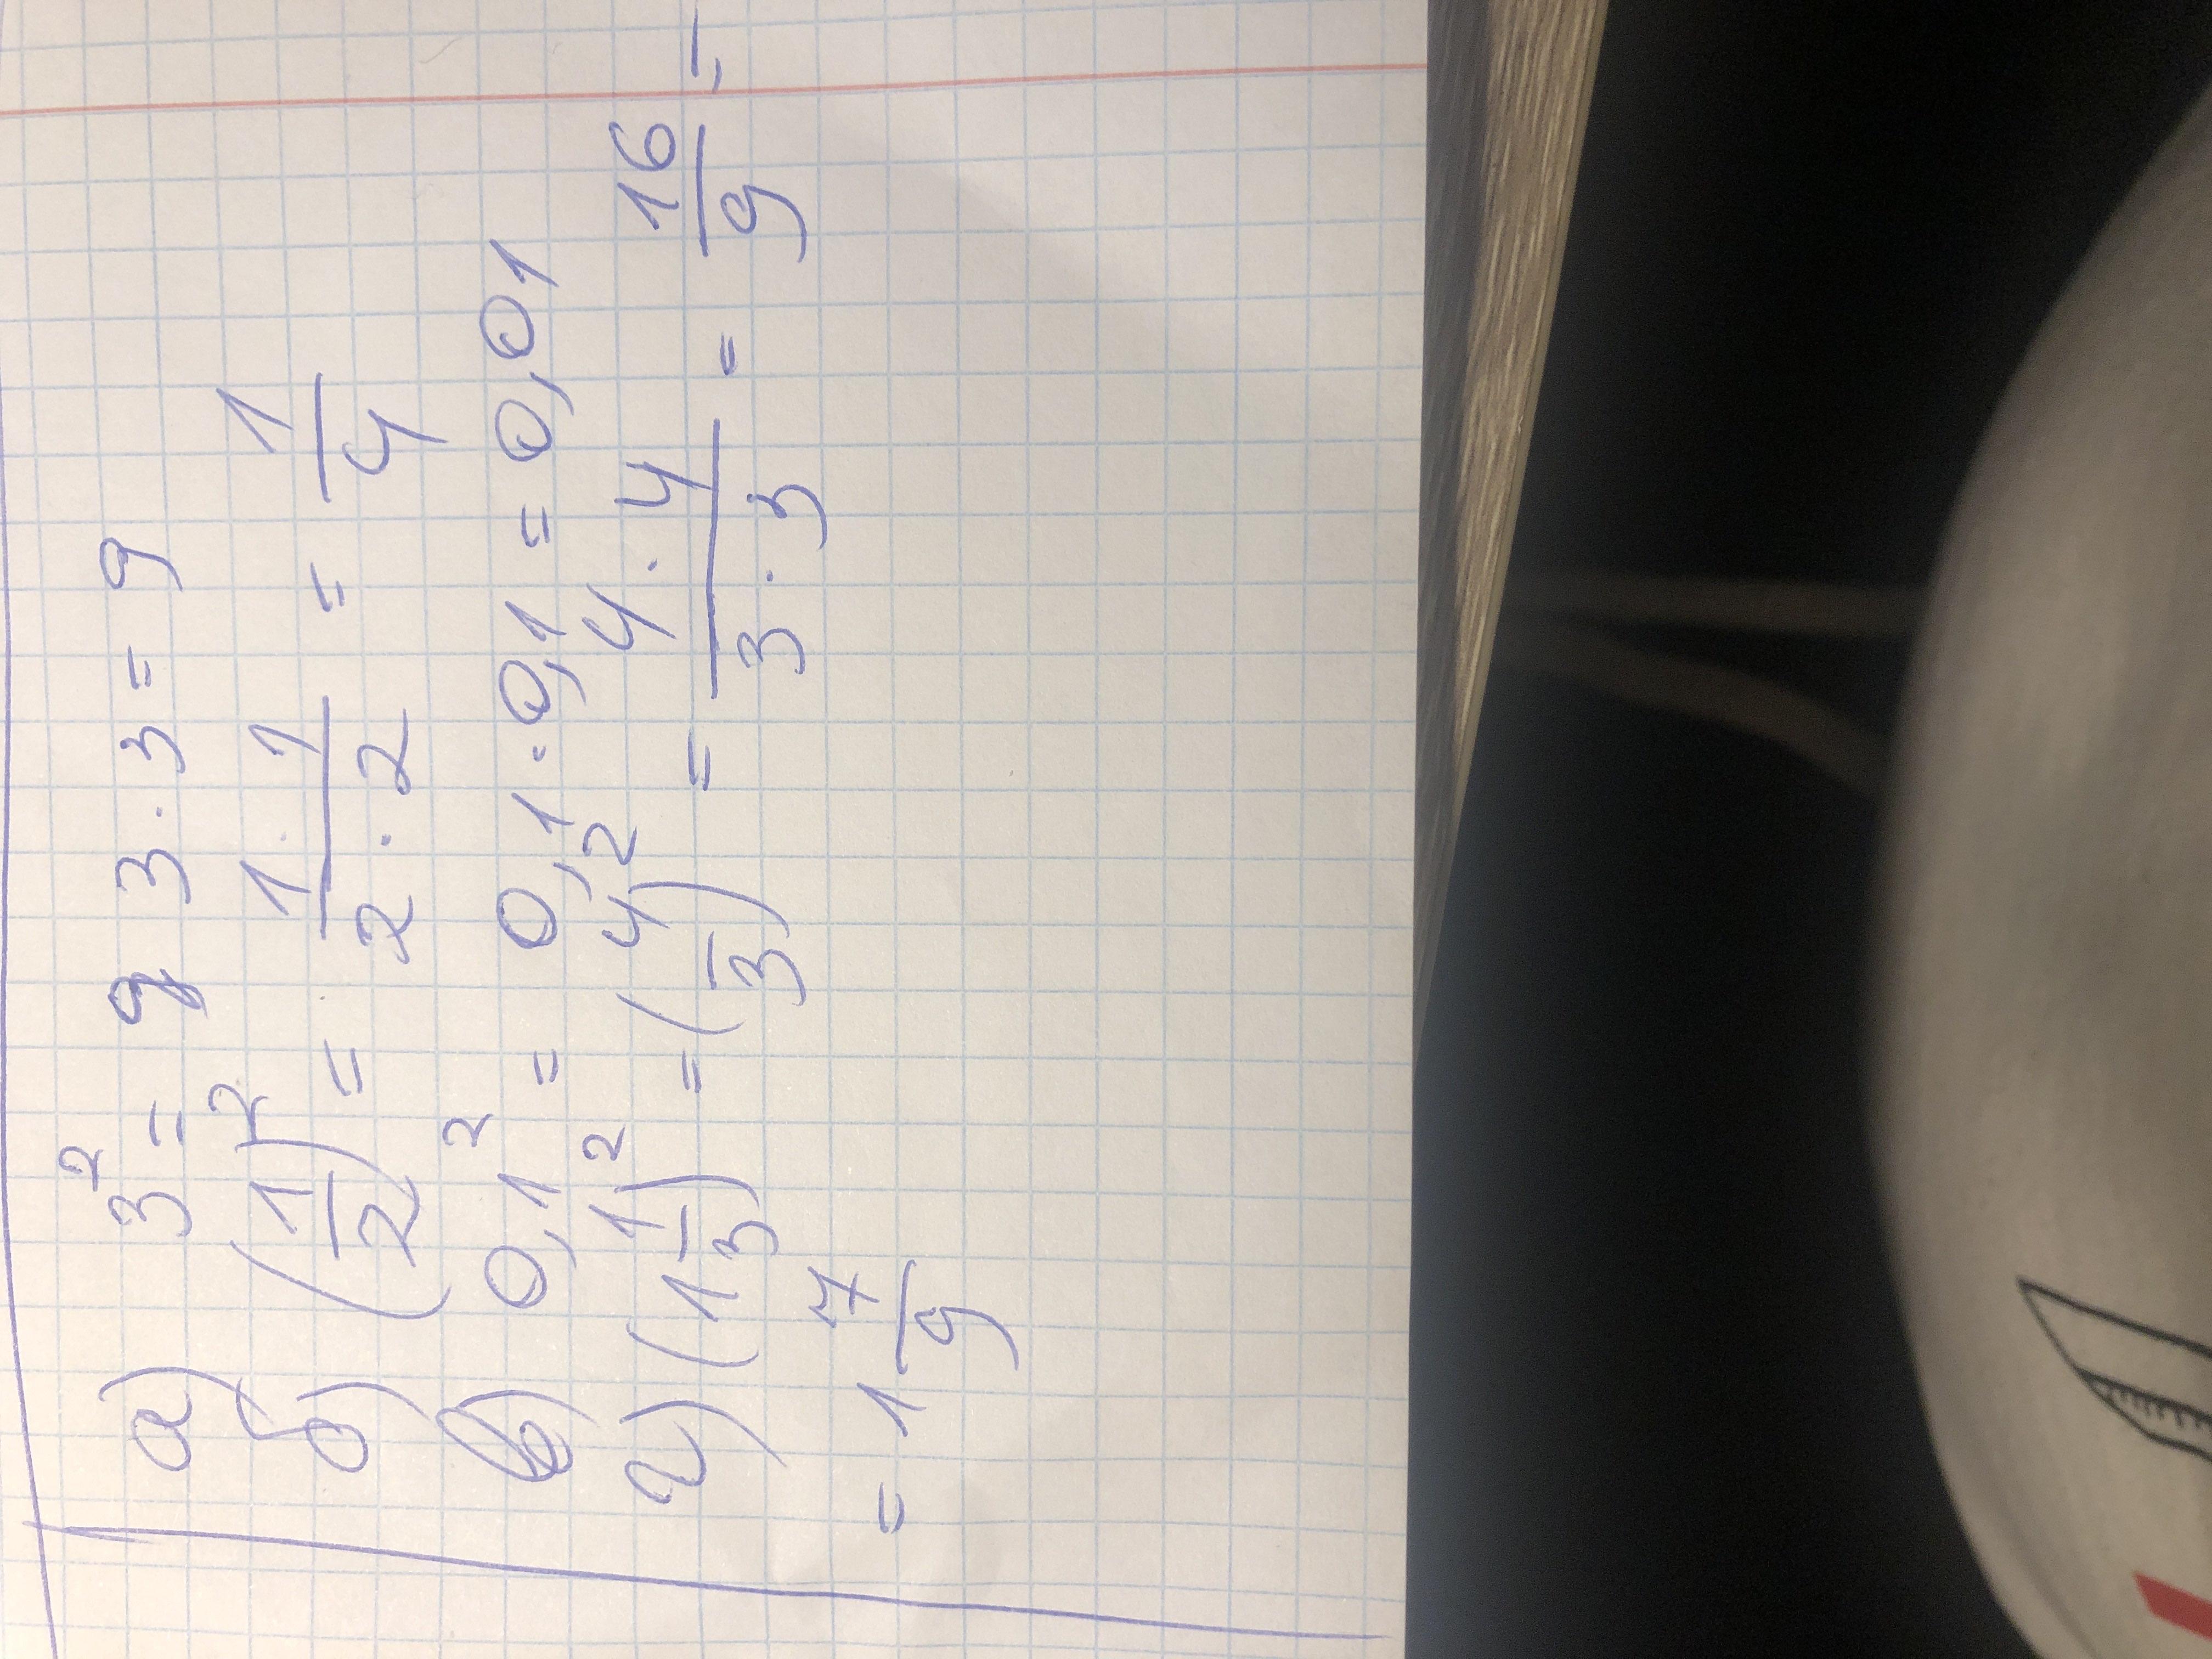 а) 3² = 9 3 · 3 = 9
б) (1/2)² = (1 · 1)/(2 · 2) = 1/4
в) 0,1² = 0,1 · 0,1 = 0,01
г) (1 1/3)² = (4/3)² = (4 · 4)/(3 · 3) = 16/9 =
= 1 7/9